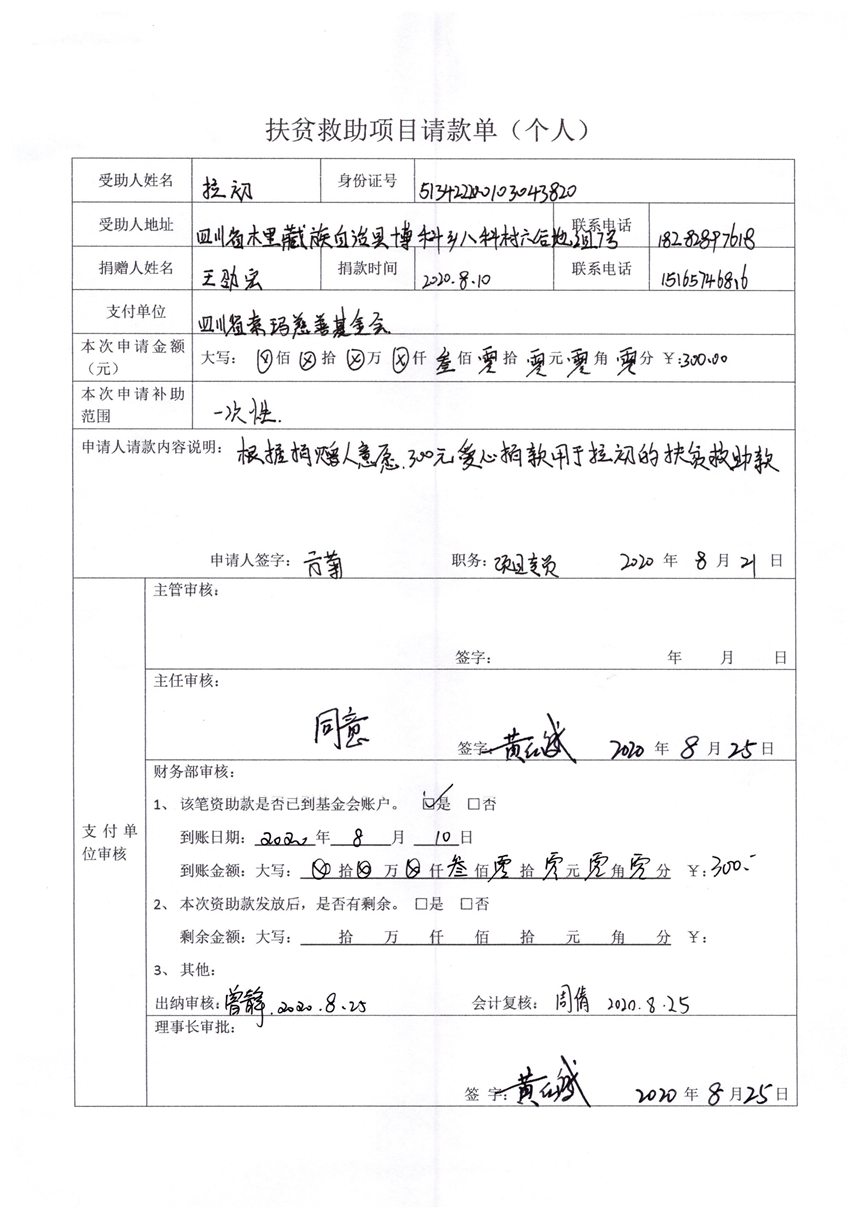 扶贫救助项目请款单（个人）
受助人姓名 拉初 身份证号 513422200103043820
受助人地址 四川省木里藏族自治县博科乡八科村六合地组7号 联系电话 18282897618
捐赠人姓名 王劲宏 捐款时间 2020.8.10 联系电话 15165746816
支付单位 四川省索玛慈善基金会
本次申请金额（元） 大写：ⓧ佰ⓧ拾ⓧ万ⓧ仟叁佰零拾零元零角零分 ￥:300.00
本次申请补助范围 一次性.
申请人请款内容说明：根据捐赠人意愿.300元爱心捐款用于拉初的扶贫救助款
申请人签字： 职务：项目专员 2020 年 8 月 21 日
支付单位审核
主管审核：
签字： 年 月 日
主任审核：
同意
签字： 2020 年 8 月 25 日
财务部审核：
1、 该笔资助款是否已到基金会账户。 ☑是 □否
到账日期：2020 年 8 月 10 日
到账金额：大写：ⓧ拾ⓧ万ⓧ仟叁佰零拾零元零角零分 ￥：300.-
2、 本次资助款发放后，是否有剩余。 □是 □否
剩余金额：大写： 拾 万 仟 佰 拾 元 角 分 ￥：
3、 其他：
出纳审核：曾静.2020.8.25 会计复核：周倩 2020.8.25
理事长审批：
签 字： 2020 年 8 月 25 日